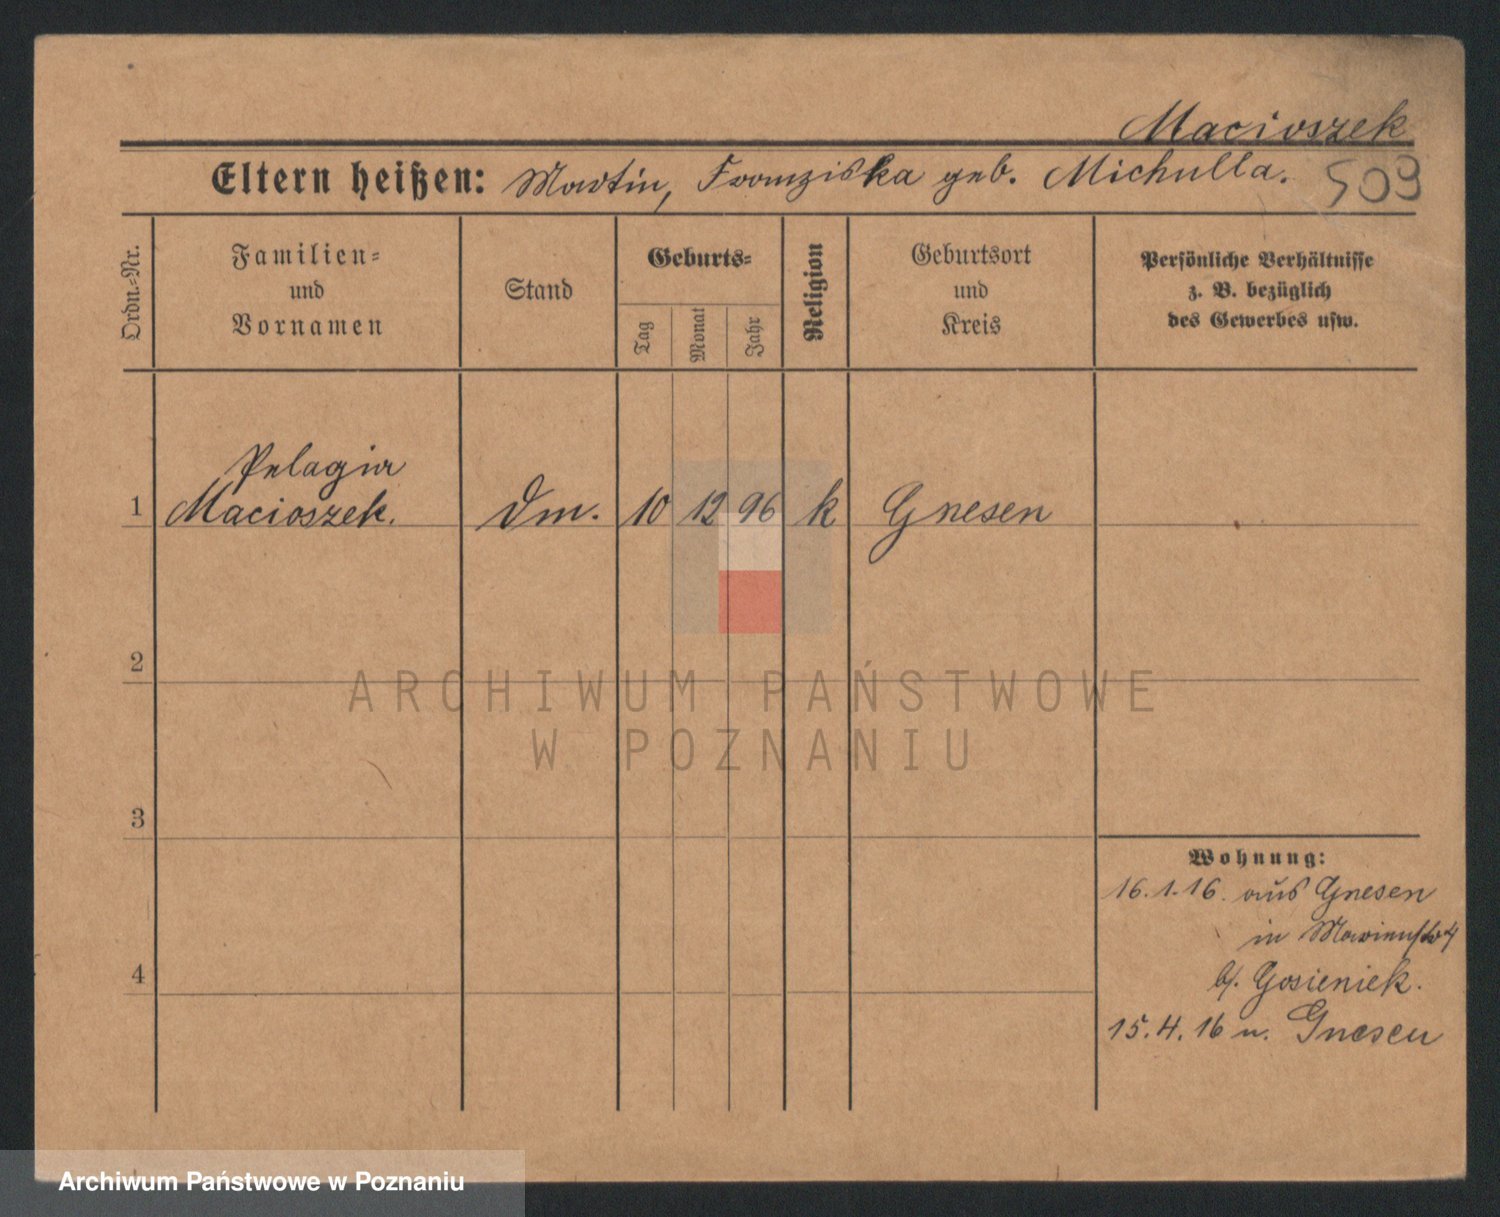 Macioszek
Eltern heißen: Martin, Franziska geb. Michulla.
509
Ordn.-Nr.
Familien-
und
Vornamen
Stand
Geburts-
Tag
Monat
Jahr
Religion
Geburtsort
und
Kreis
Persönliche Verhältnisse
z. B. bezüglich
des Gewerbes usw.
Pelagia
1 Macioszek. Dm. 10 12 96 k Gnesen
2
ARCHIWUM PAŃSTWOWE
W POZNANIU
3
Wohnung:
16.1.16. aus Gnesen
in Marienstr 4
b/. Gosieniek.
4
15.4.16 n. Gnesen
Archiwum Państwowe w Poznaniu